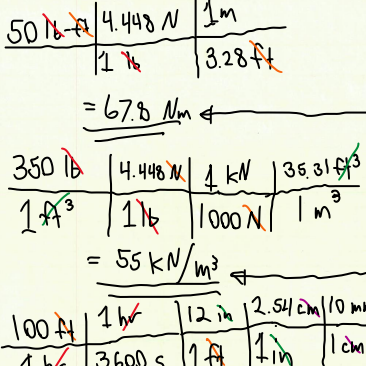 50 lb-ft 4.448 N 1 m
1 lb 3.28 ft
= 67.8 Nm
350 lb 4.448 N 1 kN 35.31 ft³
1 ft³ 1 lb 1000 N 1 m³
= 55 kN/m³
100 ft 1 hr 12 in 2.54 cm 10 mm
1 hr 3600 s 1 ft 1 in 1 cm